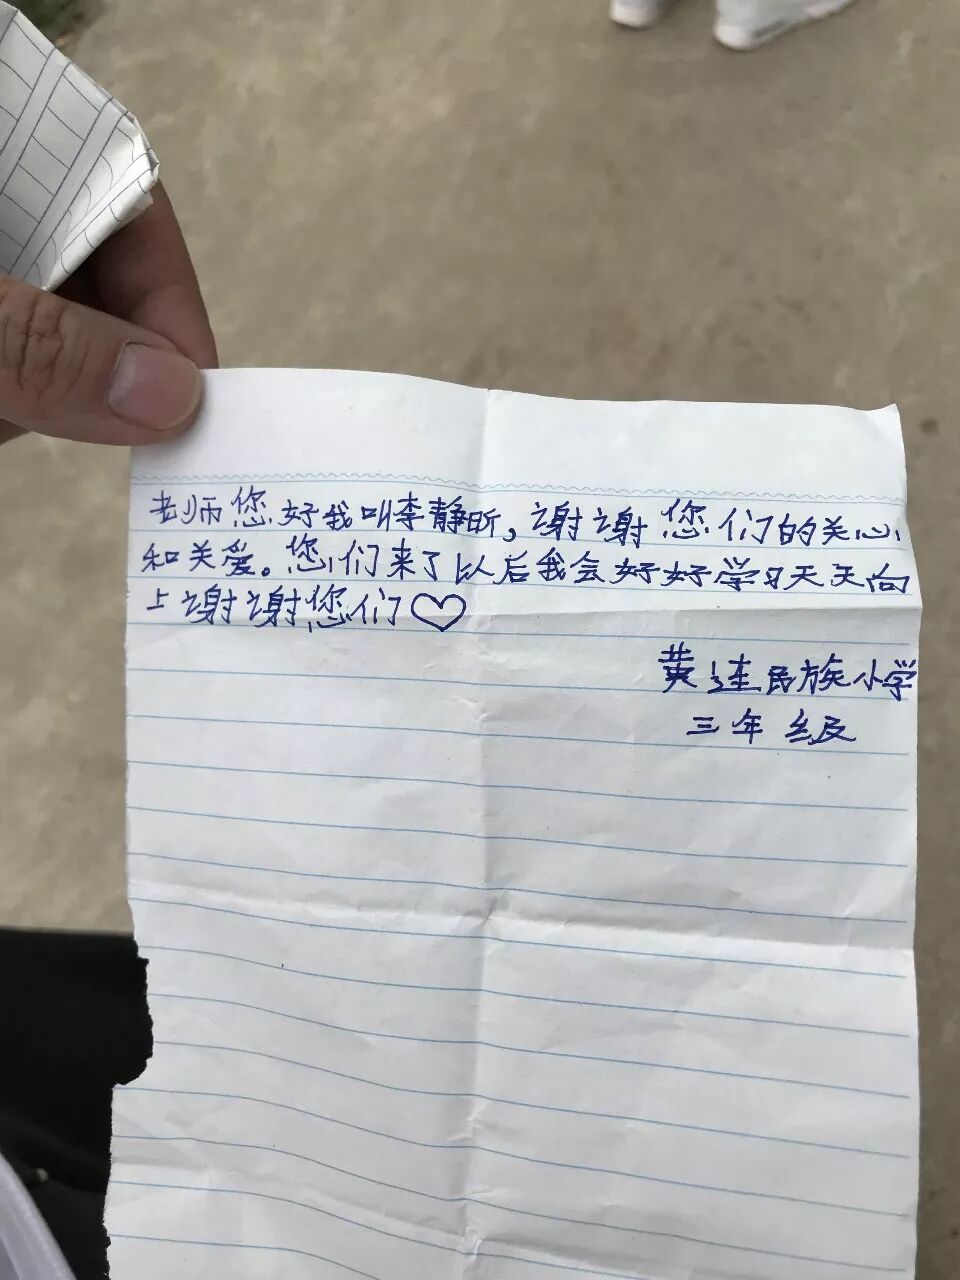 老师您好我叫李静昕，谢谢您们的关心
和关爱。您们来了以后我会好好学习天天向
上谢谢您们♡
黄连民族小学
三年级